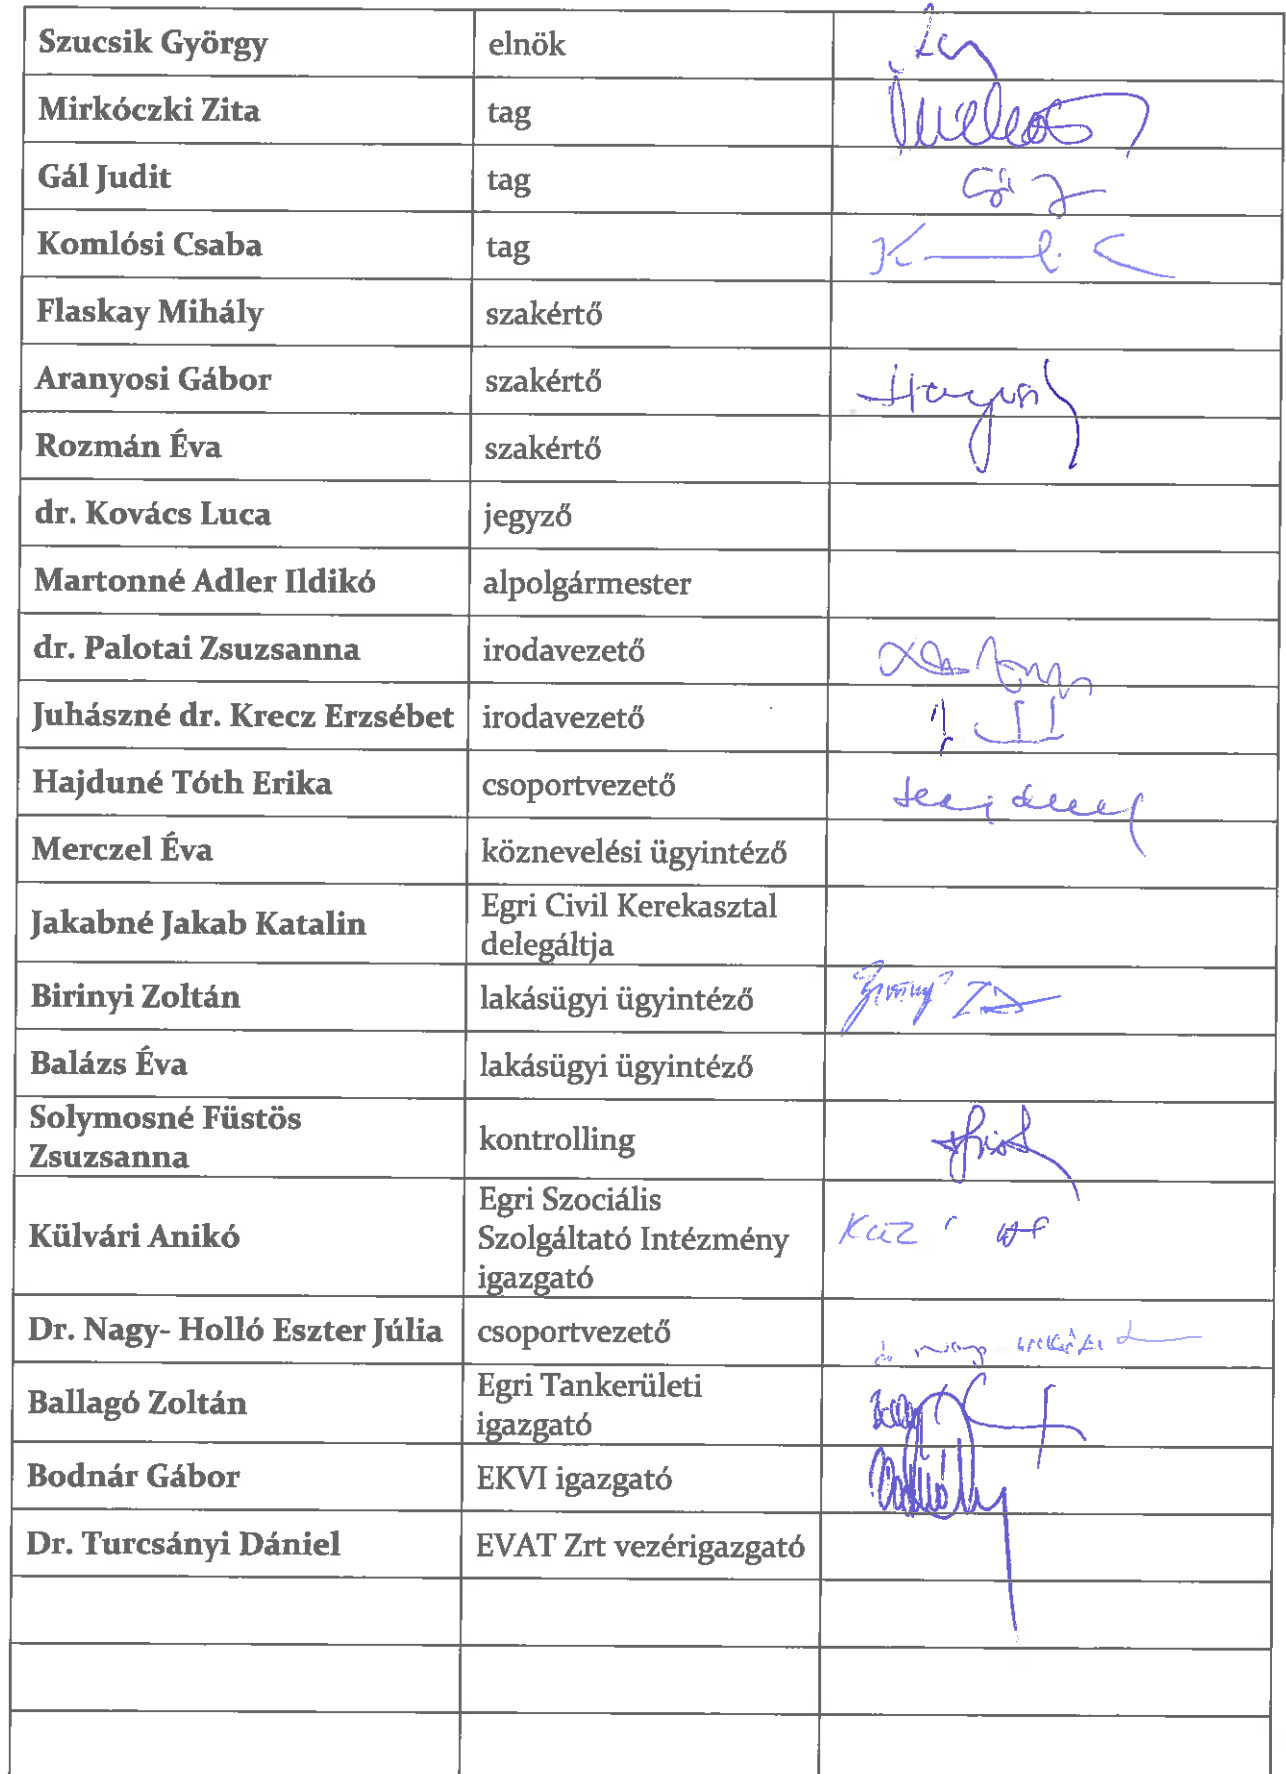 Szucsik György elnök
Mirkóczki Zita tag
Gál Judit tag
Komlósi Csaba tag
Flaskay Mihály szakértő
Aranyosi Gábor szakértő
Rozmán Éva szakértő
dr. Kovács Luca jegyző
Martonné Adler Ildikó alpolgármester
dr. Palotai Zsuzsanna irodavezető
Juhászné dr. Krecz Erzsébet irodavezető
Hajduné Tóth Erika csoportvezető
Merczel Éva köznevelési ügyintéző
Jakabné Jakab Katalin
Egri Civil Kerekasztal
delegáltja
Birinyi Zoltán lakásügyi ügyintéző
Balázs Éva lakásügyi ügyintéző
Solymosné Füstös
Zsuzsanna
kontrolling
Külvári Anikó
Egri Szociális
Szolgáltató Intézmény
igazgató
Dr. Nagy- Holló Eszter Júlia csoportvezető
Ballagó Zoltán
Egri Tankerületi
igazgató
Bodnár Gábor EKVI igazgató
Dr. Turcsányi Dániel EVAT Zrt vezérigazgató